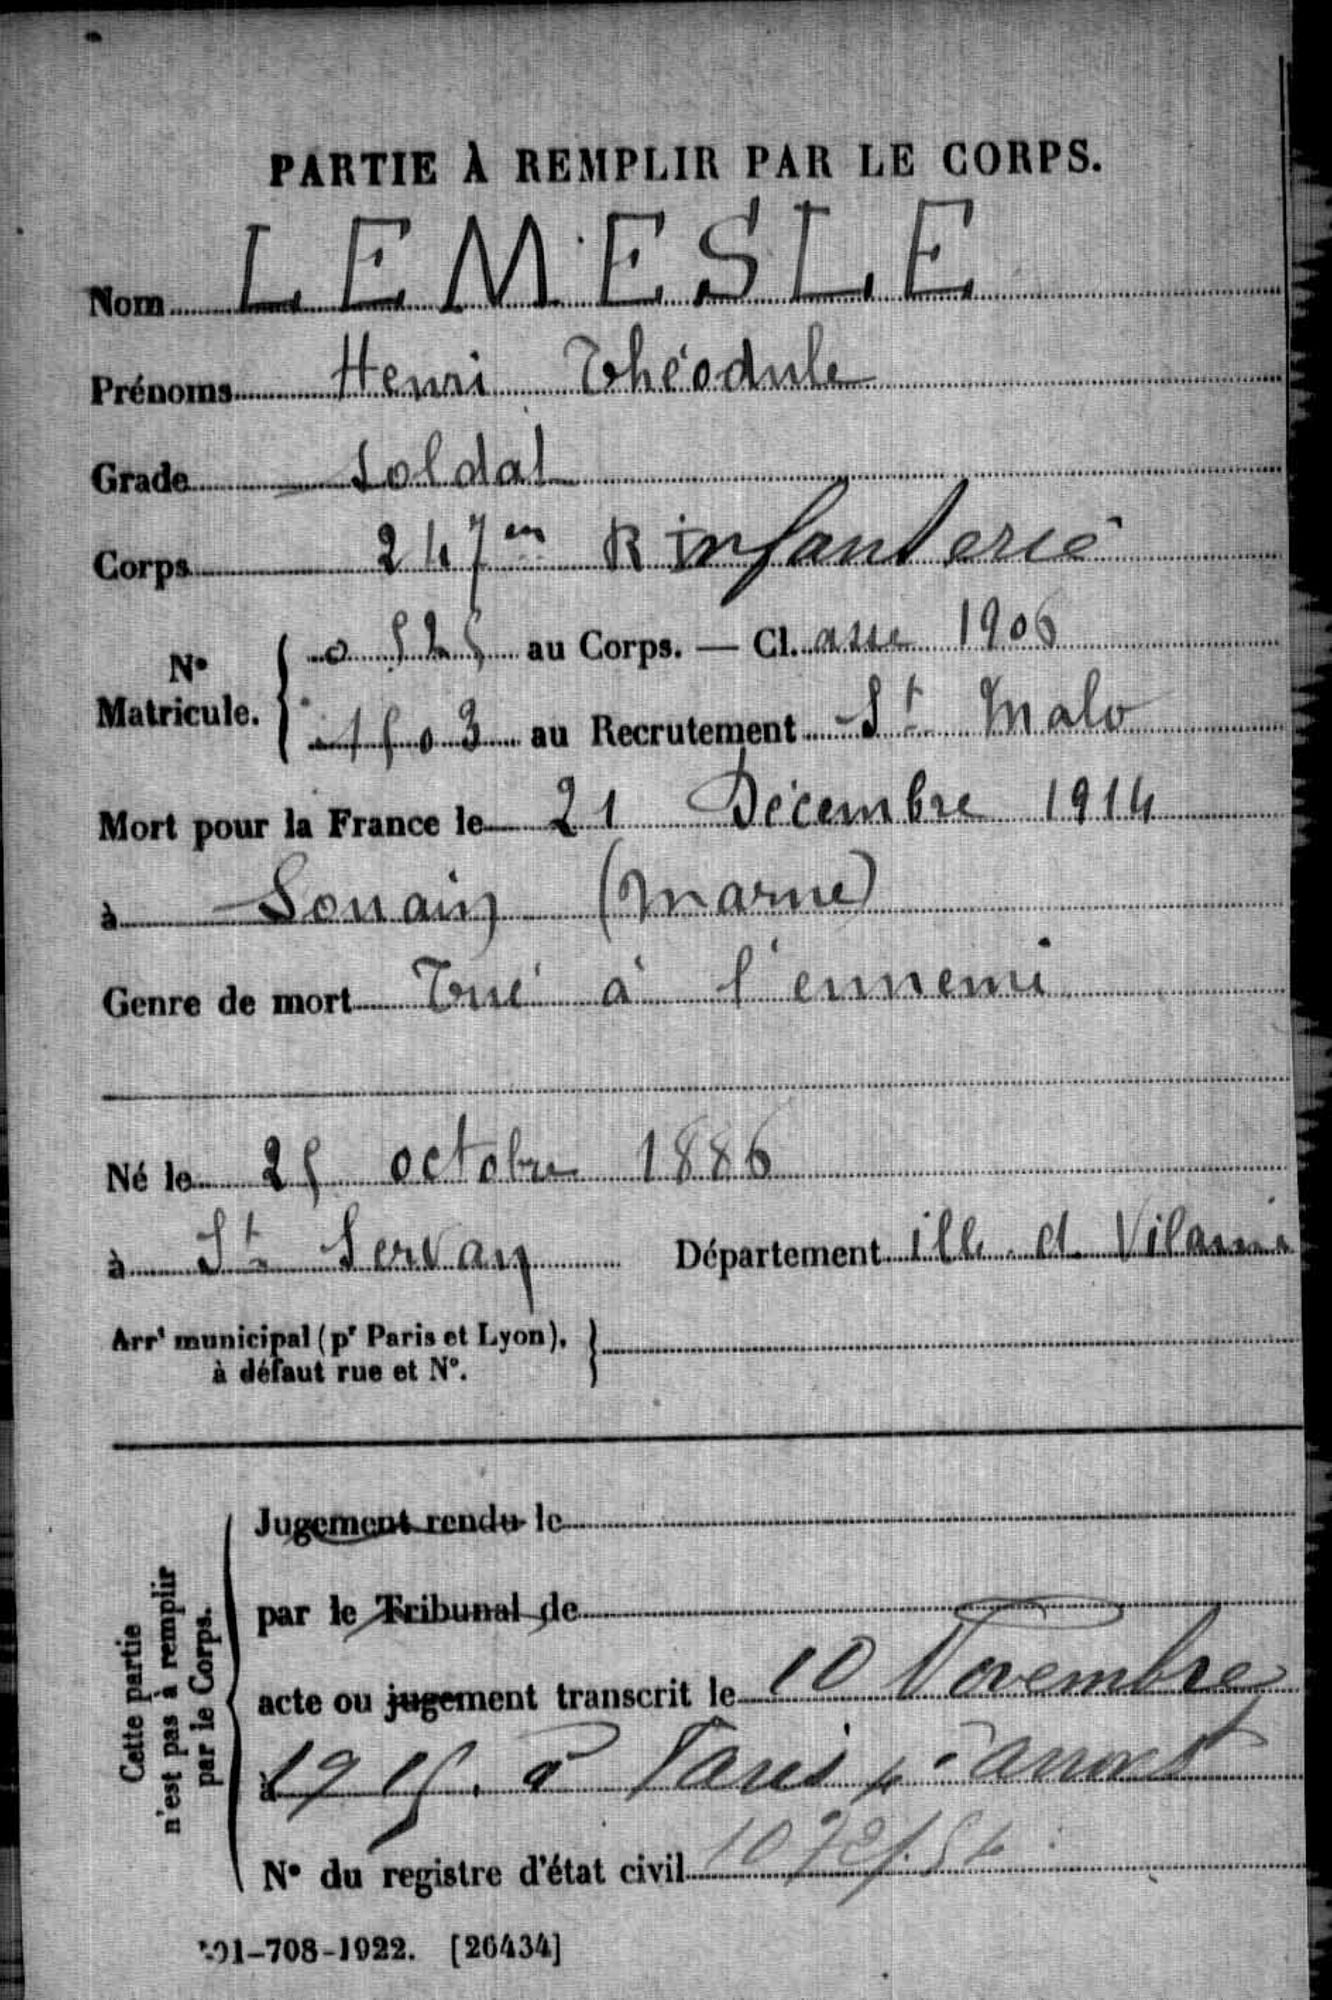 PARTIE À REMPLIR PAR LE CORPS.
Nom LEMESLE
Prénoms Henri Théodule
Grade Soldat
Corps 247em R Infanterie
N° Matricule. { 0525 au Corps. — Cl. asse 1906
1503 au Recrutement St Malo
Mort pour la France le 21 Décembre 1914
à Souain (Marne)
Genre de mort Tué à l'ennemi
Né le 25 octobre 1886
à St Servan Département ille et Vilaine
Arrt municipal (pr Paris et Lyon), }
à défaut rue et N°.
Cette partie n'est pas à remplir par le Corps.
Jugement rendu le
par le Tribunal de
acte ou jugement transcrit le 10 Novembre
à 1915. à Paris 4e arrondt
N° du registre d'état civil
-708-1922. [26434]